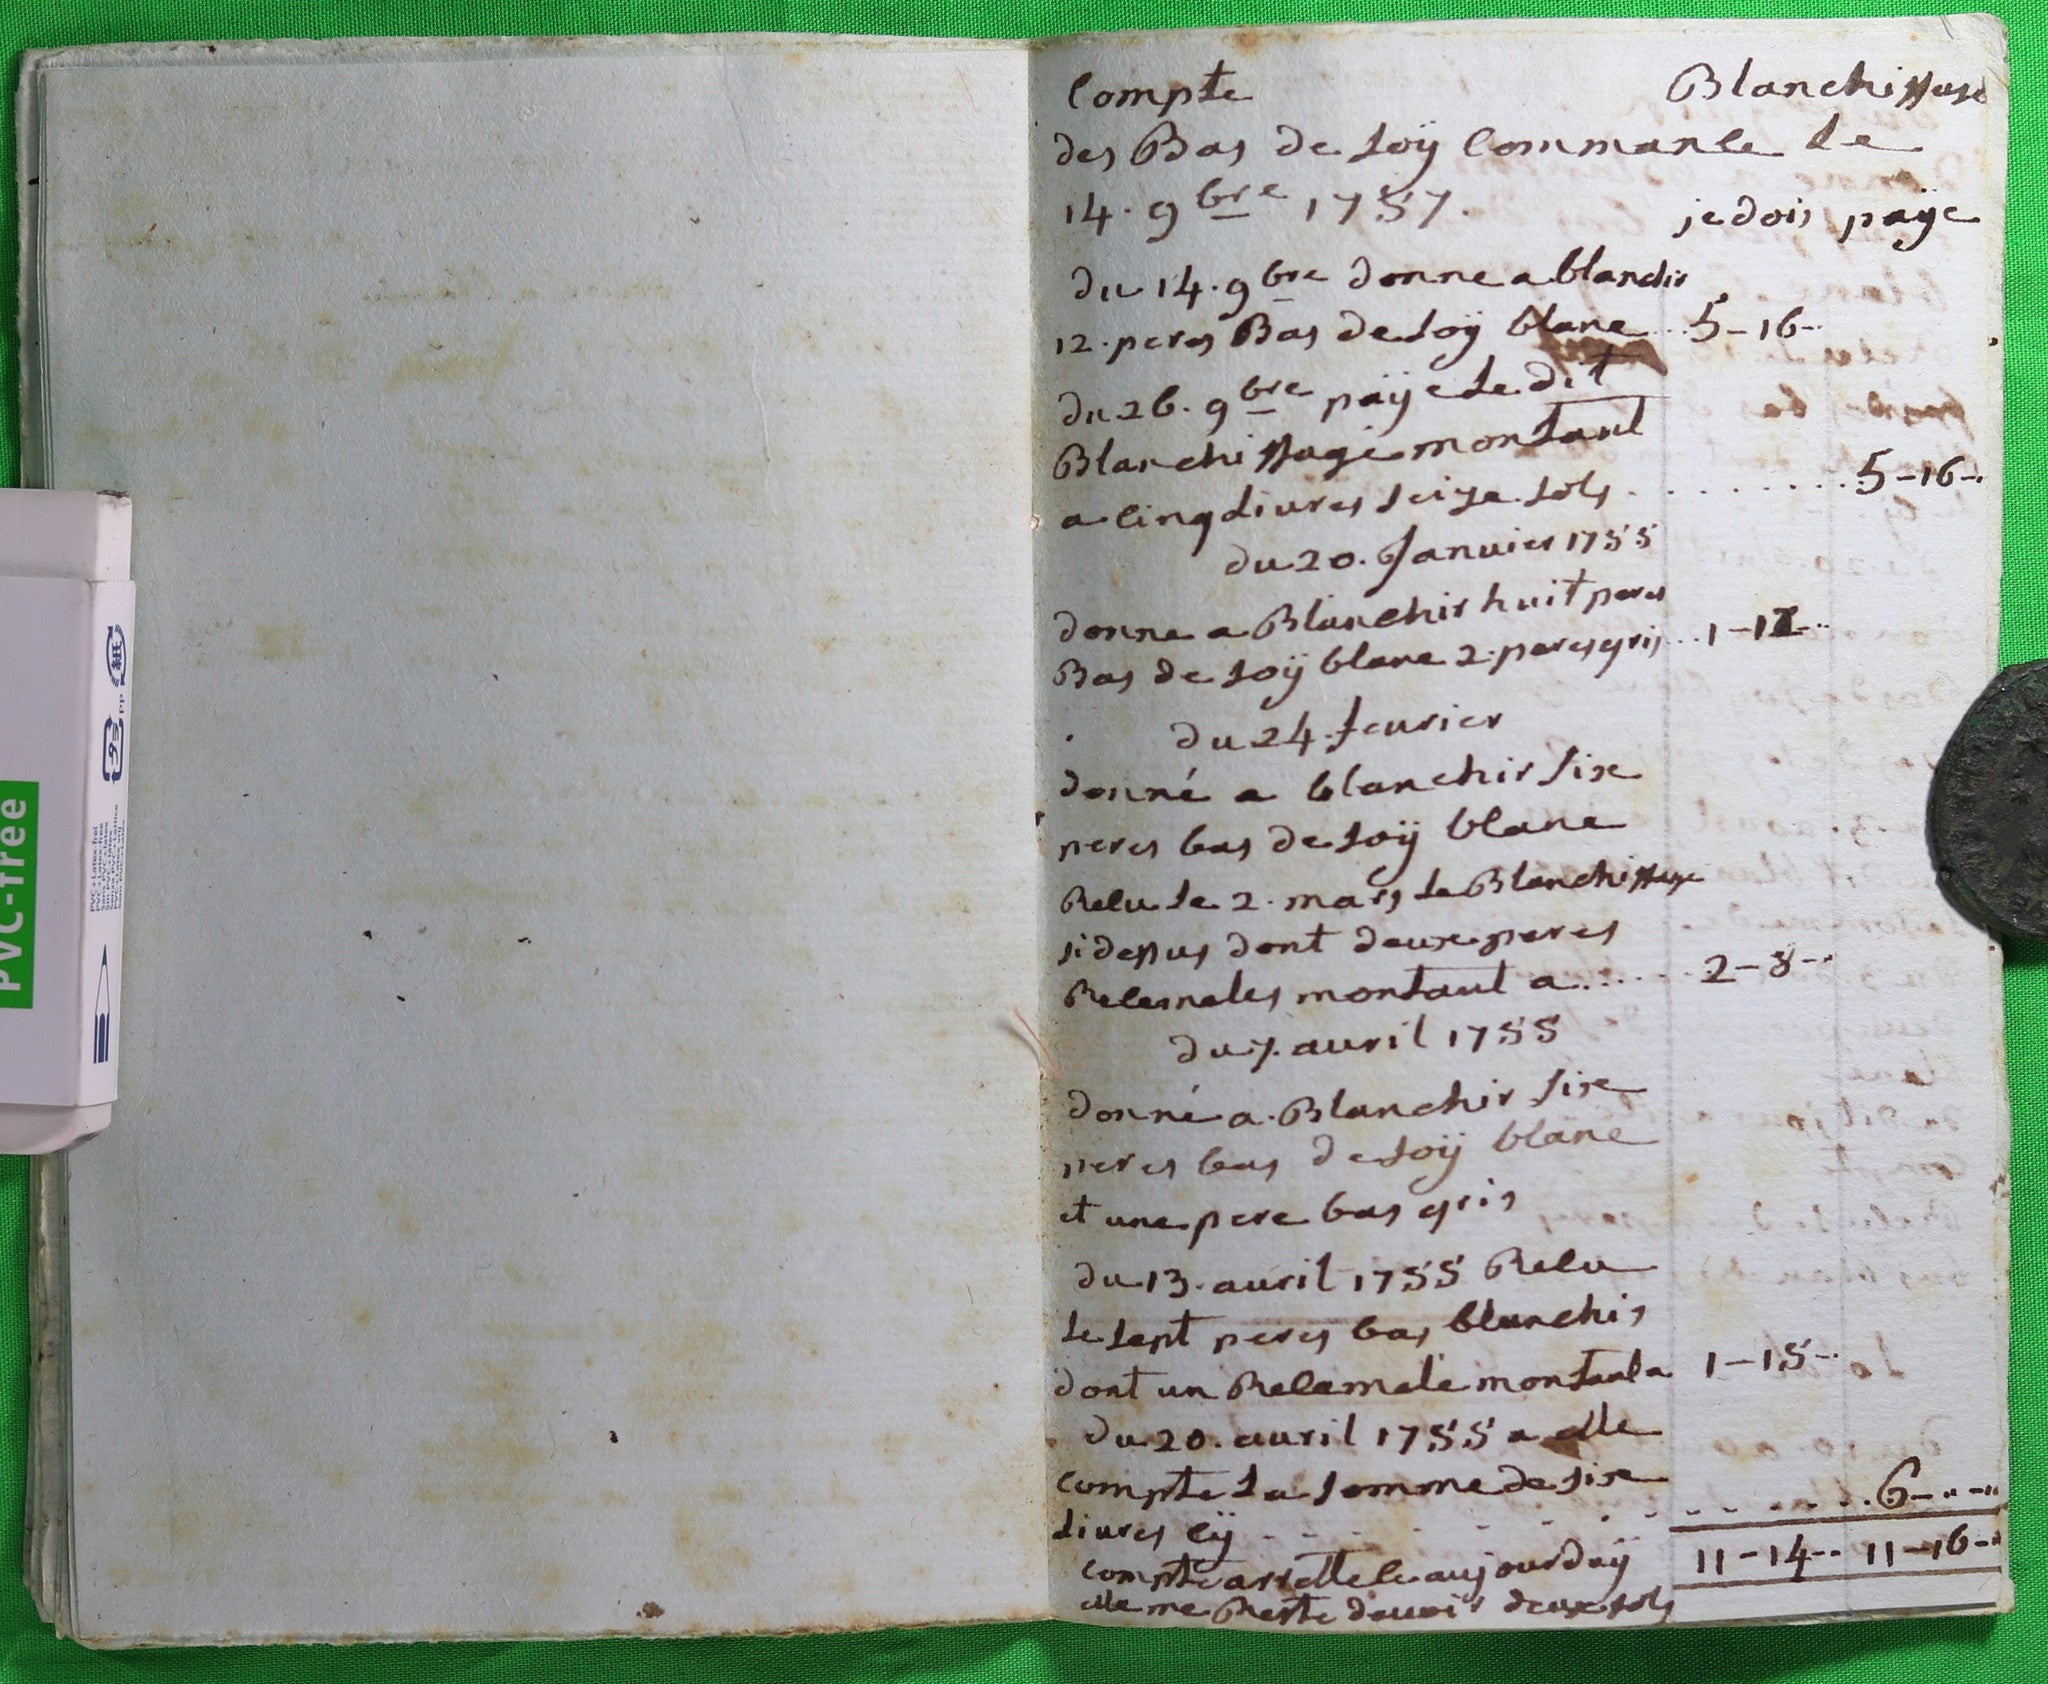 PVC-free
PVC+Latex-frei
PVC+Latex-free
PP
Compte Blanchissuse
des Bas de soÿ Commance le
14. 9bre 1757. je dois paÿe
du 14. 9bre donne a blanchir
12. peres Bas de soÿ blanc .. 5-16-
du 26. 9bre paÿe le dit
Blanchissage montant
a cinq livres seize sols . . . . . . . . 5-16-
du 20. Janvier 1755
donne a Blanchir huit peres
Bas de soÿ blanc 2. peres gris ... 1-1
du 24. fevrier
donné a blanchir six
peres bas de soÿ blanc
Recu le 2. mars le Blanchissage
si dessus dont deux peres
Racamales montant a ..... 2-8-
du 7. avril 1755
donné a Blanchir six
peres bas de soÿ blanc
et une pere bas gris
du 13. avril 1755 Recu
le sept peres bas blanchis
dont un Racamale montant a 1-15-
du 20. avril 1755 a elle
compte la somme de six
livres cÿ . . . . . . . . . 6-
compte arrette le aujourduÿ 11-14- 11-16-
elle me Reste devoir deux sols